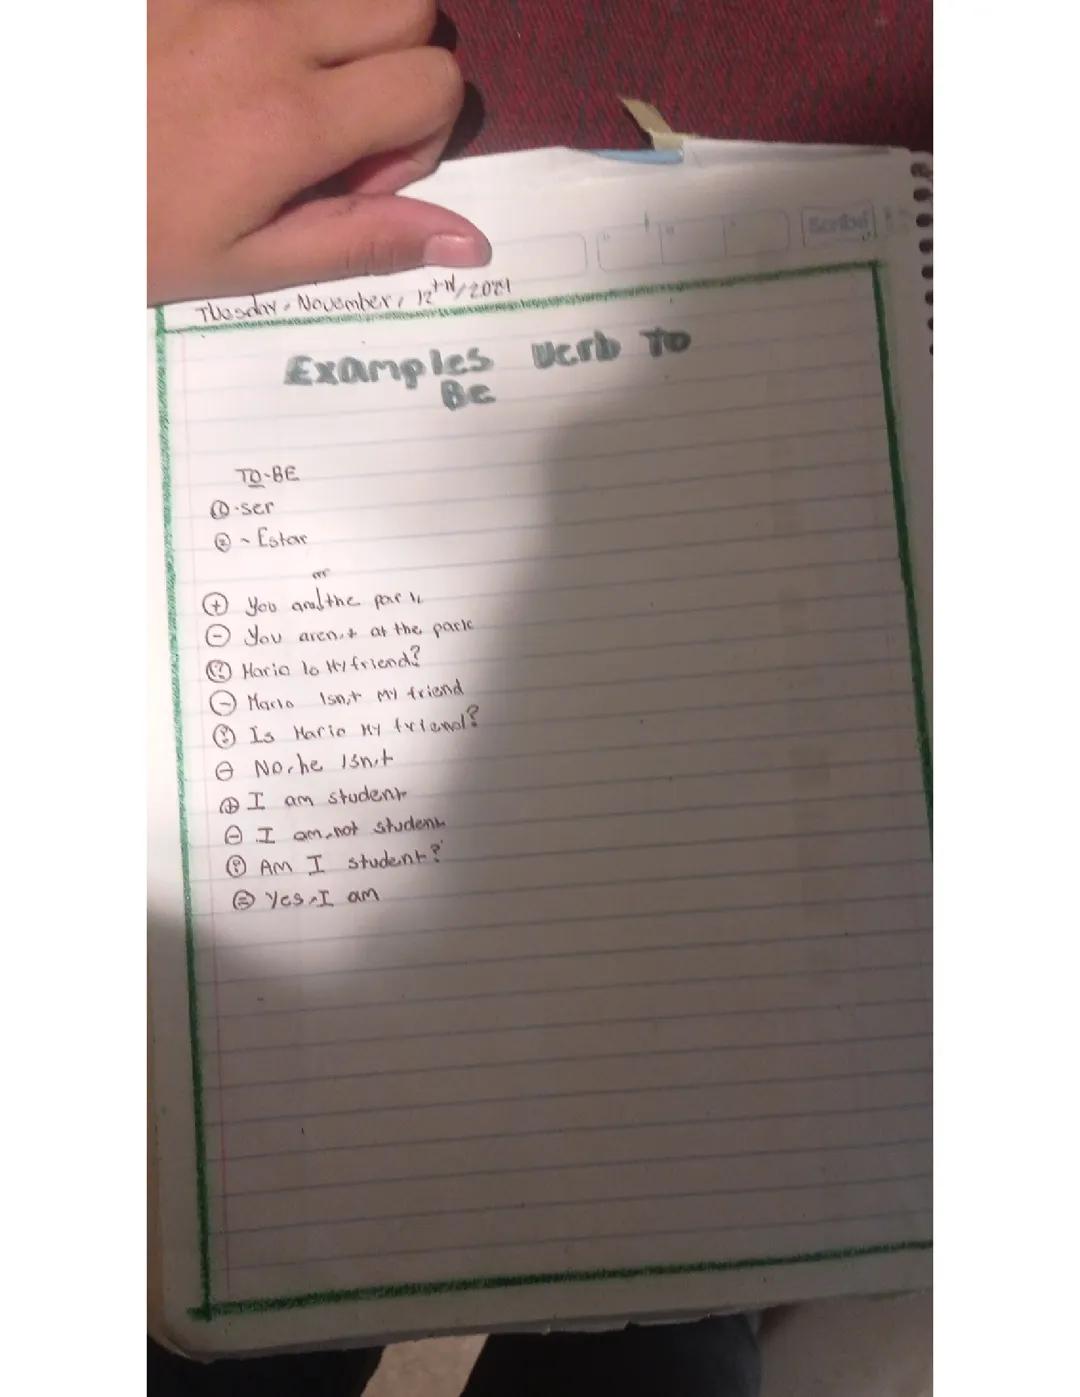 Scribe
Tuesday, November, 12th/2021
Examples Verb To
Be
TO-BE
① -ser
② - Estar
+ You are the park
- You aren,t at the park
? Mario Is My friend?
- Mario Isn,t My friend
? Is Mario My friend?
- No, he Isn,t
+ I am student
- I am, not student
? AM I student?
= Yes, I am